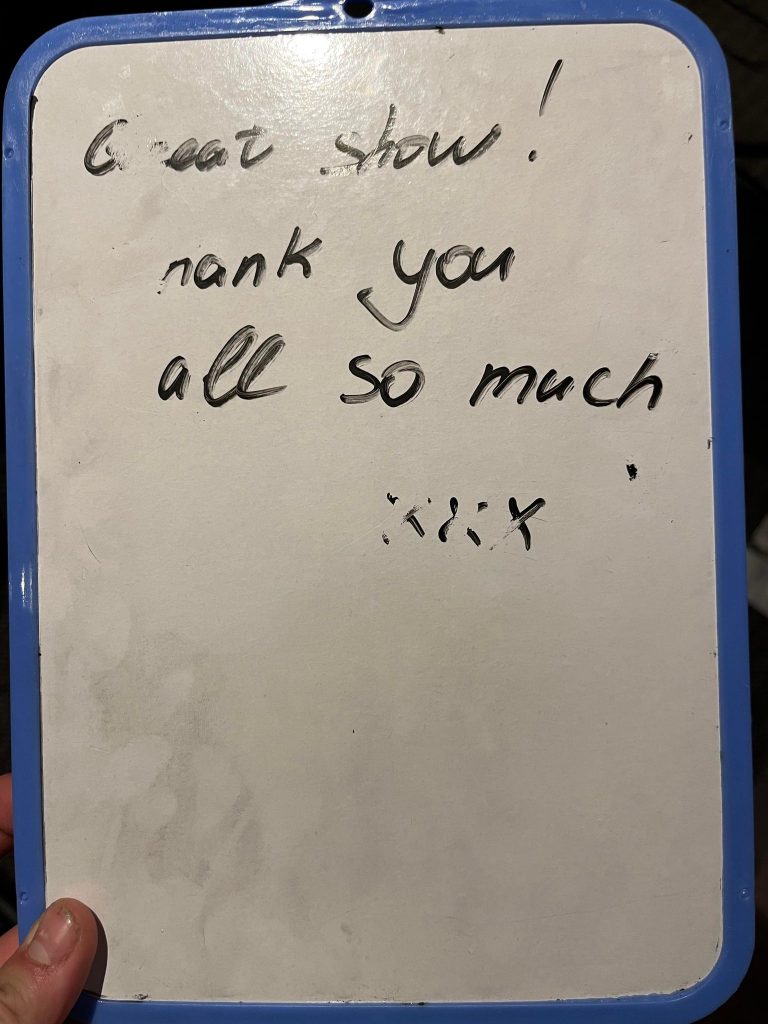 Great show!
Thank you
all so much
xxx